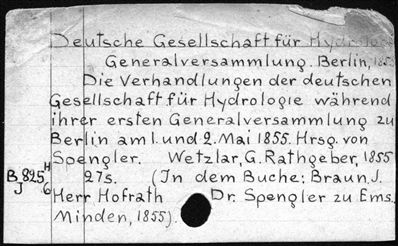 Deutsche Gesellschaft für Hydrologie
Generalversammlung. Berlin, 1855
Die Verhandlungen der deutschen
Gesellschaft für Hydrologie während
ihrer ersten Generalversammlung zu
Berlin am 1. und 2. Mai 1855. Hrsg. von
Spengler. Wetzlar, G. Rathgeber, 1855
B 825 H 27 s. (In dem Buche: Braun, J.
J 6 Herr Hofrath Dr. Spengler zu Ems.
Minden, 1855).